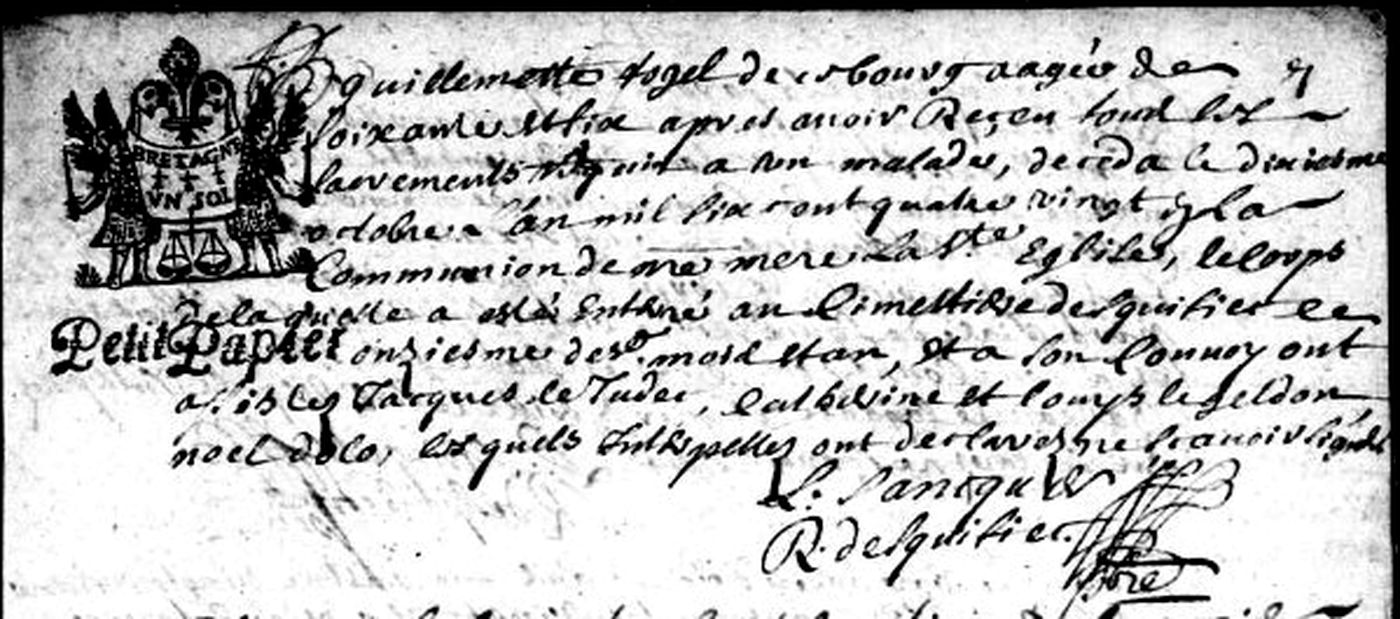 BRETAGNE
VN SOL
Petit Papier
guillemette de ce bourg aagée de
soixante et six apres avoir Reçeu tous les
sacrements requis a un malade, deceda le dixiesme
octobre l'an mil six cent quatre vingt en la
Communion de nre mere La Ste Eglise, le corps
de laquelle a esté Enterré au Cimettiere desquifiec le
onziesme desd. mois et an, et a son convoy ont
assistes Jacques le Tudec, Catherine et Louys le
noel lesquels Interpelles ont declaré ne scavoir signer
R. desquifiec